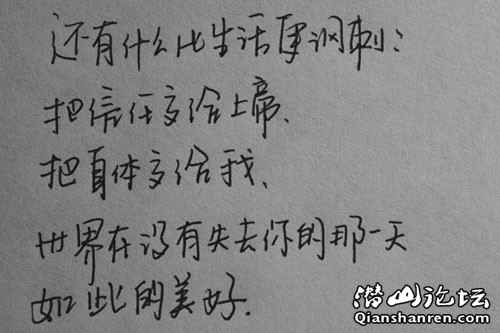 还有什么比生活更讽刺：
把信任交给上帝、
把身体交给我、
世界在没有失去你的那一天
如此的美好.
潜山论坛
Qianshanren.com